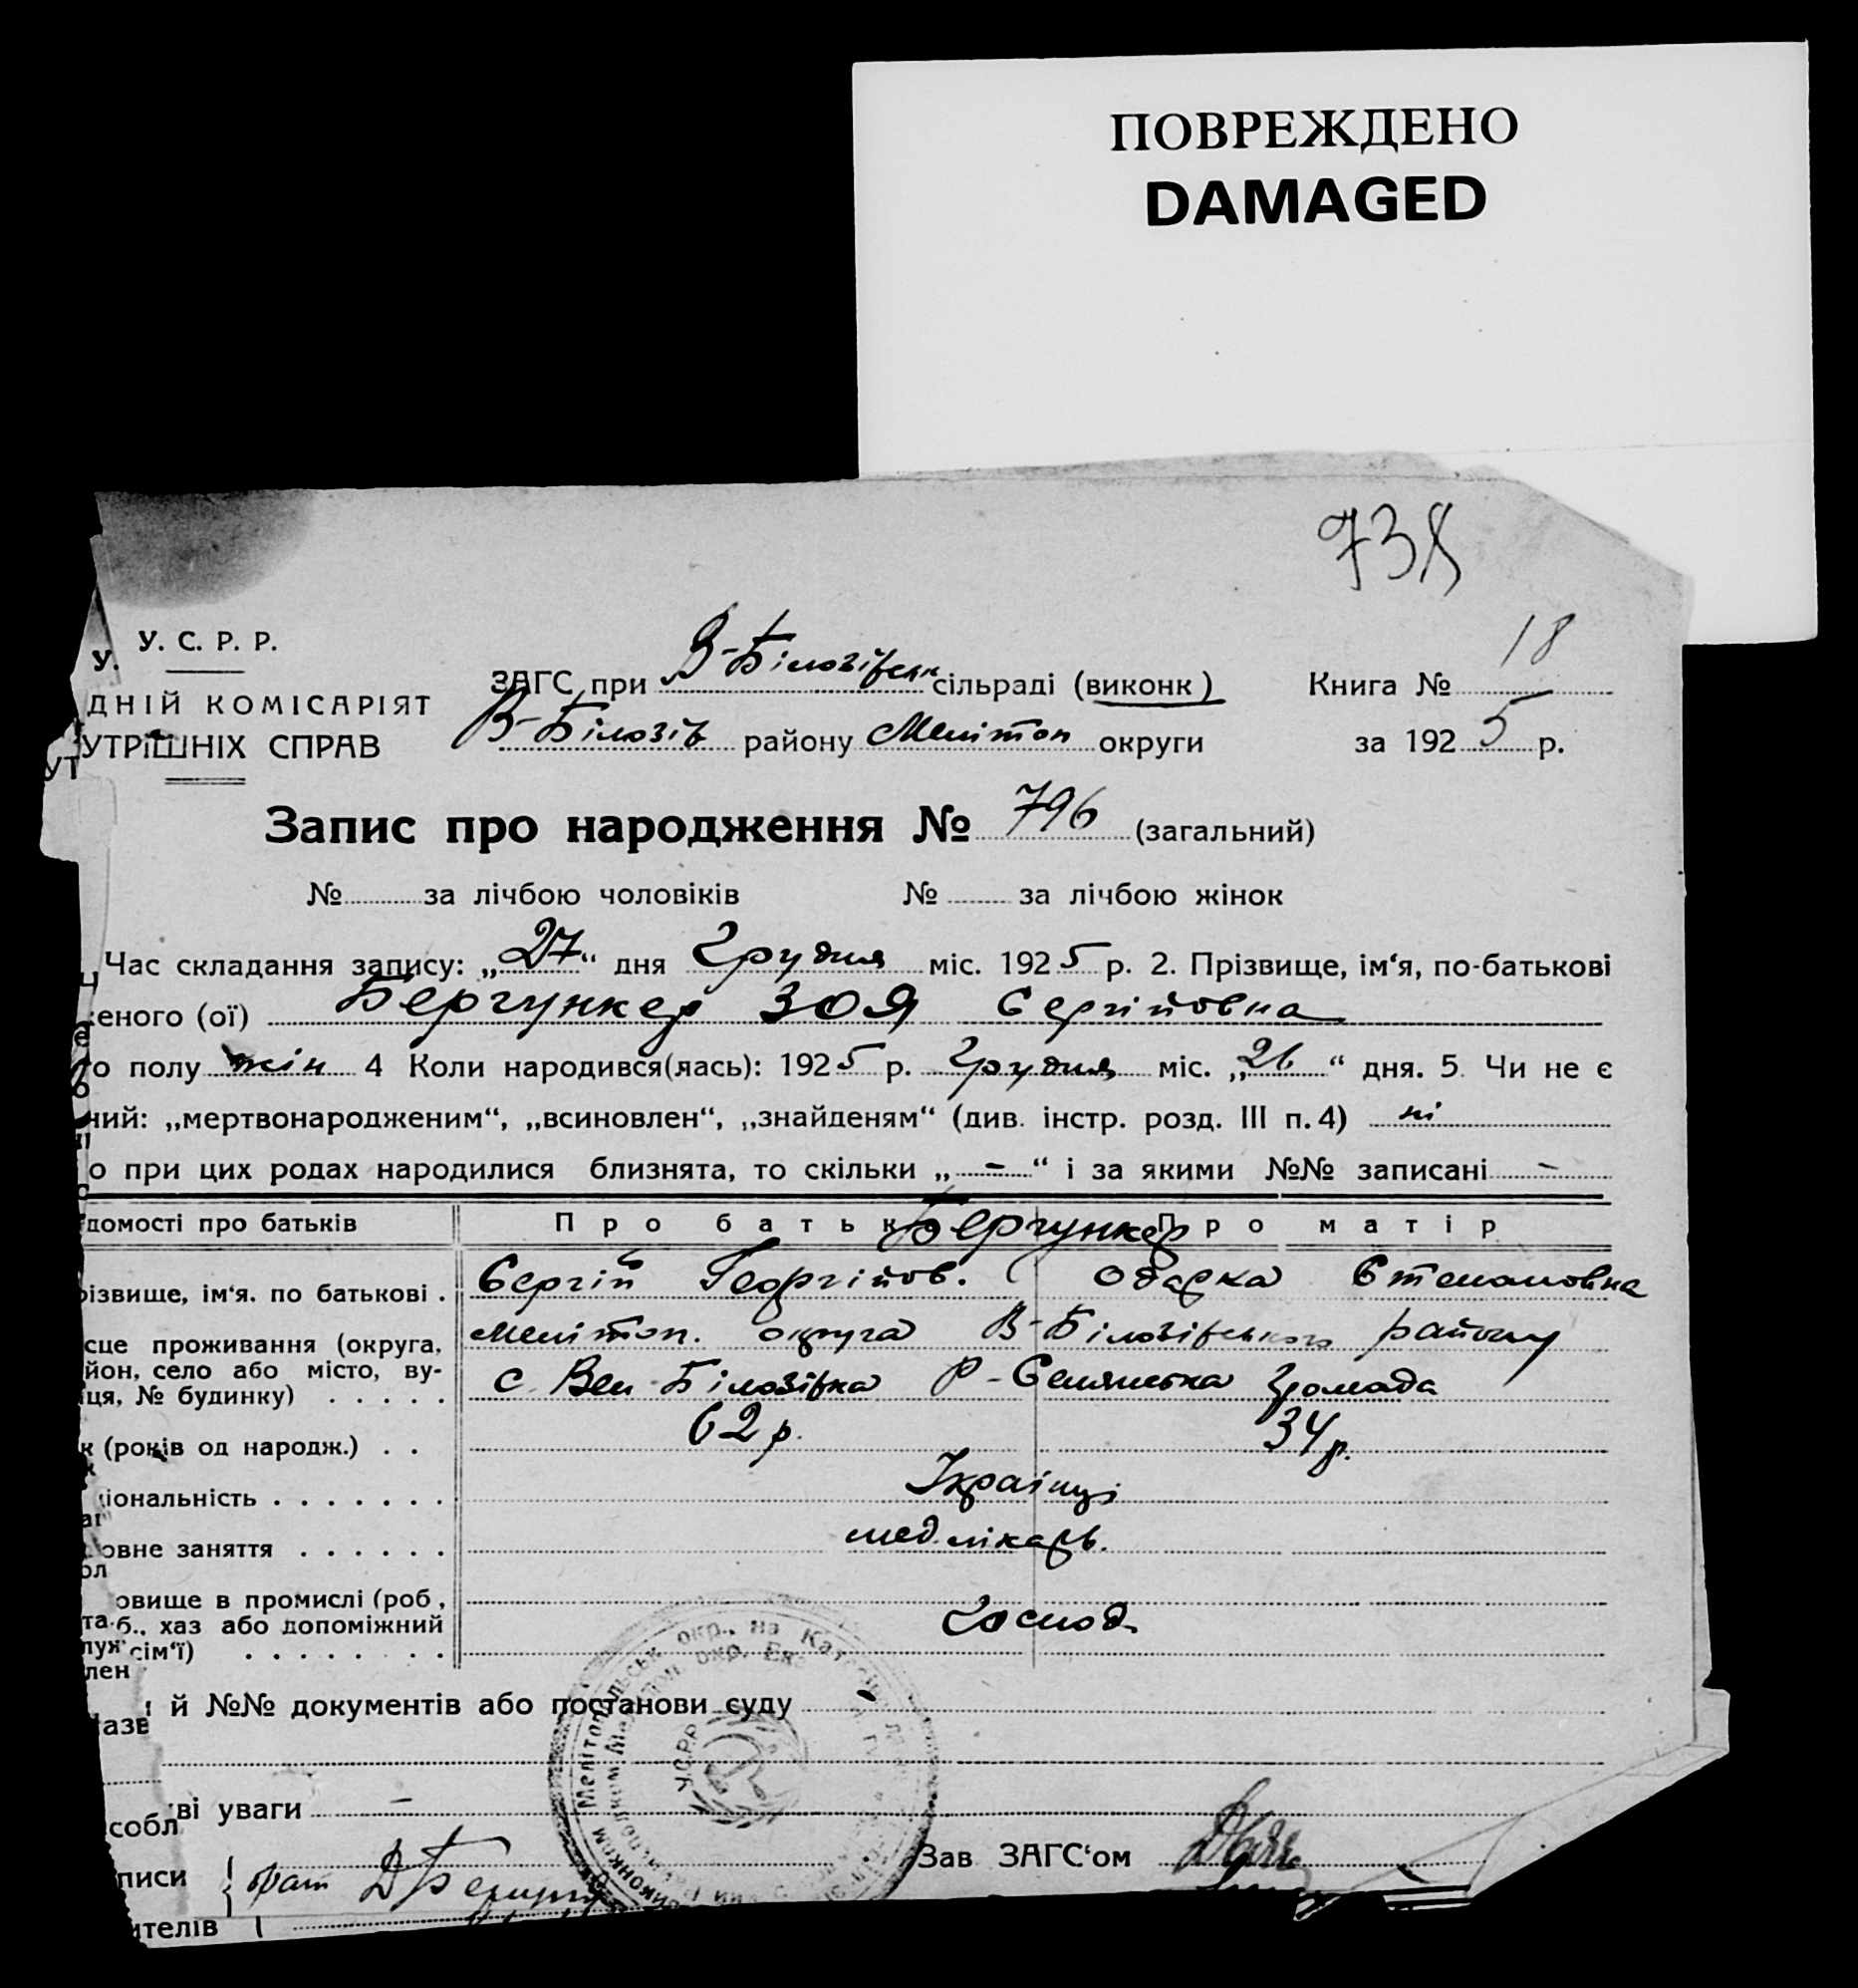 ПОВРЕЖДЕНО
DAMAGED
738
У. С. Р. Р.
У.
ДНІЙ КОМІСАРІЯТ
УТРІШНІХ СПРАВ
УТ
ЗАГС при В-Білозівськ сільраді (виконк)
Книга № 18
В-Білозів району Мелітоп округи
за 1925 р.
Запис про народження № 796 (загальний)
№ за лічбою чоловіків № за лічбою жінок
Час складання запису: „27“ дня Грудня міс. 1925 р. 2. Прізвище, ім‘я, по-батькові
еного (ої) Бергункер Зоя Сергійовна
о полу жін 4 Коли народився(лась): 1925 р. Грудня міс. „26“ дня. 5. Чи не є
ний: „мертвонародженим“, „всиновлен“, „знайденям“ (див. інстр. розд. III п. 4) ні
о при цих родах народилися близнята, то скільки „ - “ і за якими №№ записані -
домості про батьків Про батька Про матір
Бергункер
різвище, ім‘я. по батькові . Сергій Георгійов. Одарка Степановна
сце проживання (округа, Мелітоп. округа В-Білозівського району
йон, село або місто, ву-
ця, № будинку) . . . . . с. Вел-Білозівка Р-Семянська громада
к (років од народж.) . . 62 р. 34 р.
іональність . . . . . . . Українці
овне заняття . . . . . . мед. лікарь.
овище в промислі (роб,
б., хаз або допоміжний Господ.
сім‘ї) . . . . . . . .
лен
й №№ документів або постанови суду -
азв
ві уваги -
собл
Зав ЗАГС‘ом
писи брат Д
ителів
Мелітопольськ окр., на Кат
У.С.Р.Р.